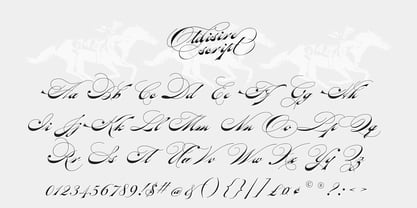 script
Aa Bb Cc Dd Ee Ff Gg Hh
Ii Jj Kk Ll Mm Nn Oo Pp Qq
Rr Ss Tt Uu Vv Ww Xx Yy Zz
0123456789!$#%&(){}[]£¢©®?:;